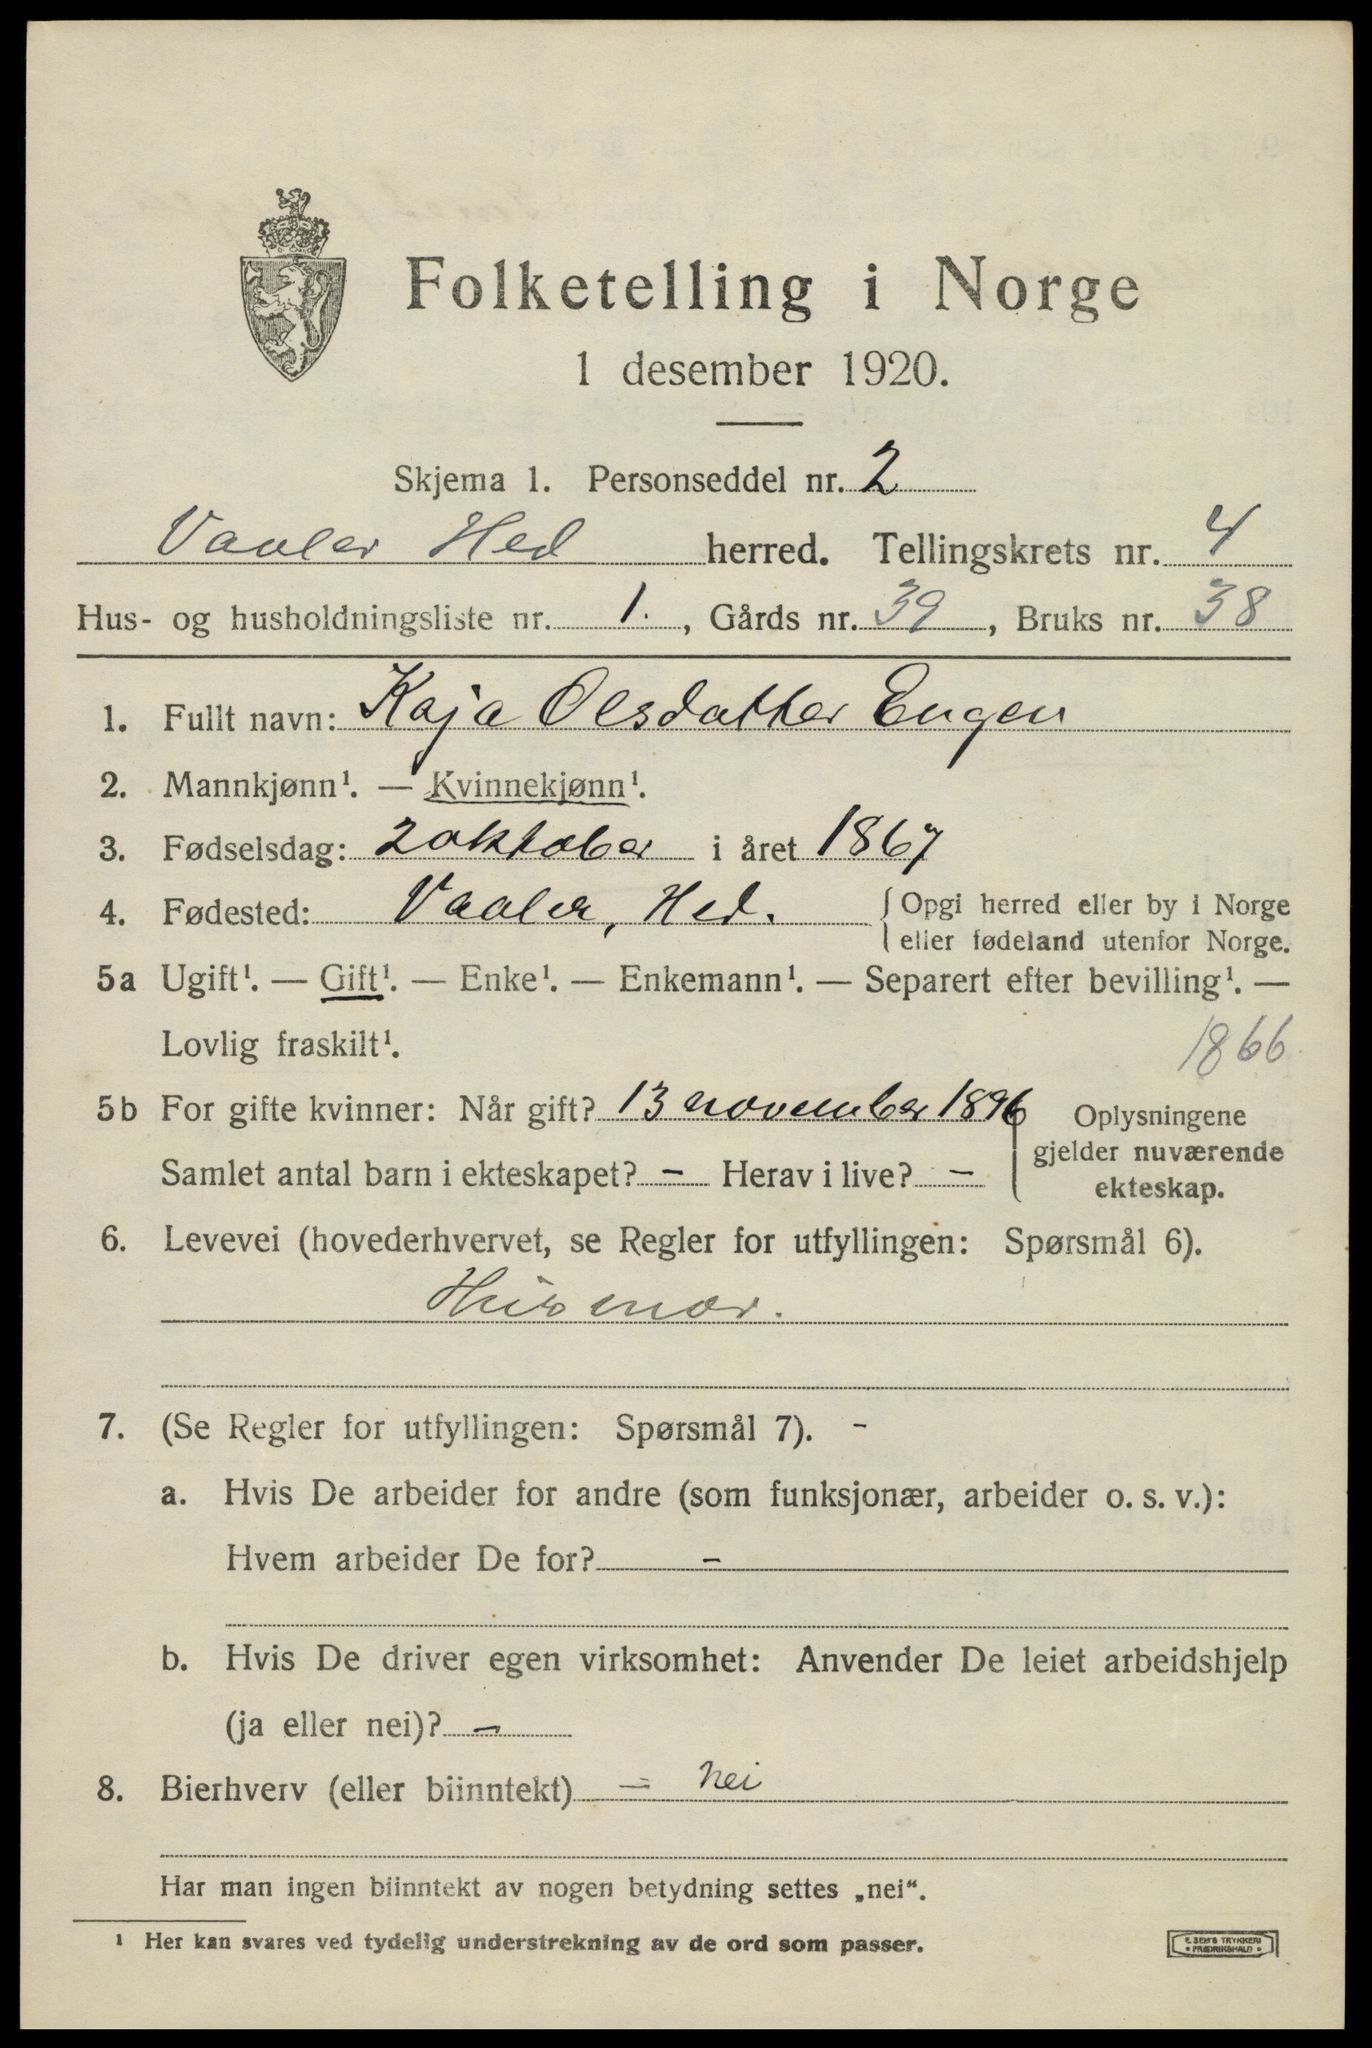 Folketelling i Norge
1 desember 1920.
Skjema 1. Personseddel nr. 2
Vaaler Hed herred. Tellingskrets nr. 4
Hus- og husholdningsliste nr. 1., Gårds nr. 39, Bruks nr. 38
1. Fullt navn: Kaja Olsdatter Engen
2. Mannkjønn¹. — Kvinnekjønn¹.
3. Fødselsdag: 2 oktober i året 1867
4. Fødested: Vaaler, Hed. { Opgi herred eller by i Norge
eller fødeland utenfor Norge.
5a Ugift¹. — Gift¹. — Enke¹. — Enkemann¹. — Separert efter bevilling¹. —
Lovlig fraskilt¹. 1866
5b For gifte kvinner: Når gift? 13 november 1896 Oplysningene
gjelder nuværende
Samlet antal barn i ekteskapet? – Herav i live? –
ekteskap.
6. Levevei (hovederhvervet, se Regler for utfyllingen: Spørsmål 6).
Husmor.
7. (Se Regler for utfyllingen: Spørsmål 7). -
a. Hvis De arbeider for andre (som funksjonær, arbeider o. s. v.):
Hvem arbeider De for? -
b. Hvis De driver egen virksomhet: Anvender De leiet arbeidshjelp
(ja eller nei)? –
8. Bierhverv (eller biinntekt) – nei
Har man ingen biinntekt av nogen betydning settes „nei“.
¹ Her kan svares ved tydelig understrekning av de ord som passer.
E. SEM'S TRYKKERI
• FREDRIKSHALD •